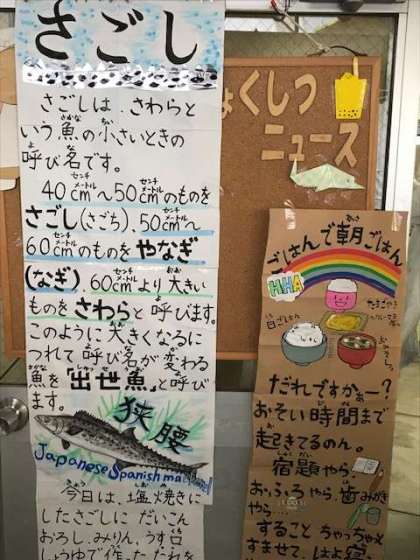 さごし
さごしは、さわらと
いう魚の小さいときの
呼び名です。
40㎝〜50㎝のものを
さごし(さごち)、50㎝〜
60㎝のものをやなぎ
(なぎ)、60㎝より大きい
ものをさわらと呼びます。
このように大きくなるに
つれて呼び名が変わる
魚を「出世魚」と呼び
ます。
狭腰
Japanese Spanish mackerel
今日は、塩焼きに
したさごしにだいこん
おろし、みりん、うす口
しょうゆで作ったたれを
ょくしつ
ニュース
ごはんで朝ごはん
HHA
たまごやき
白ごはん
だれですかぁー?
おそい時間まで
起きてるのん。
宿題やら、
おふろやら、歯みがき
やら…
すること ちゃっちゃと
すませて、はよ寝